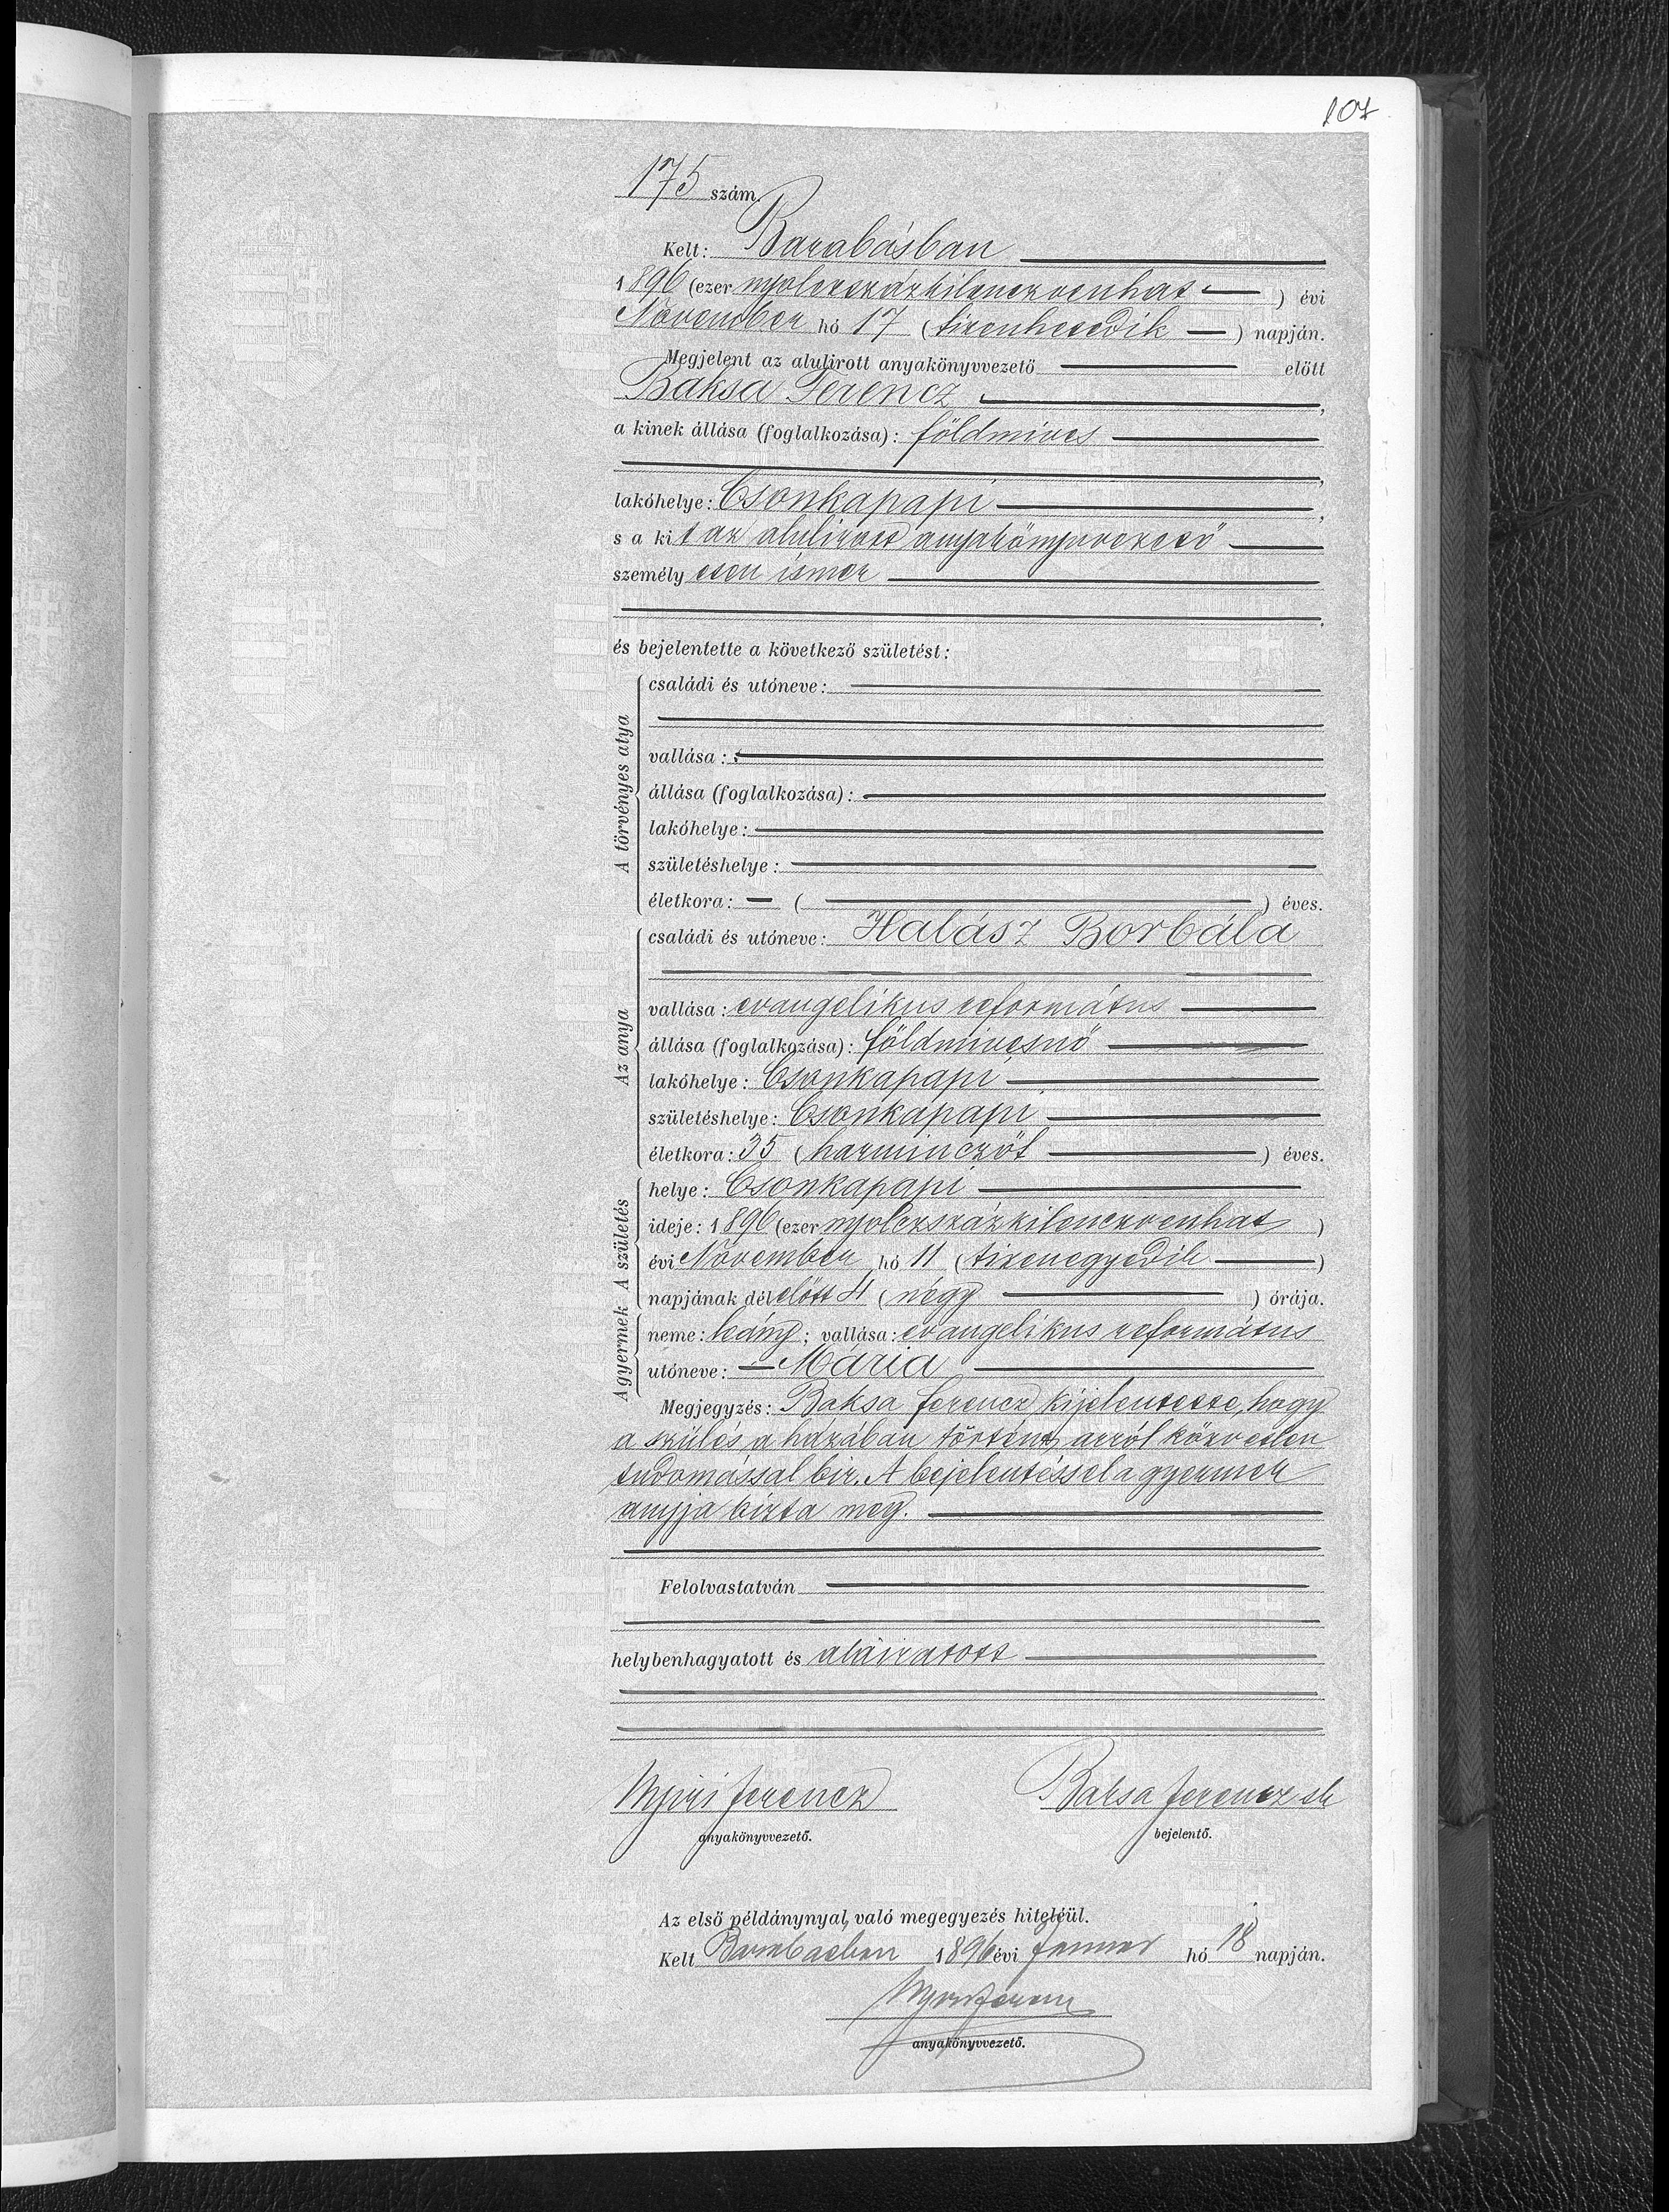 107
175 szám.
Kelt: Barabásban
1896 (ezer nyolczszázkilenczvenhat) évi
November hó 17 (tizenhetedik) napján.
Megjelent az alulirott anyakönyvvezető előtt
Baksa Ferencz,
a kinek állása (foglalkozása): földmives
,
lakóhelye: Csonkapapi,
s a kit az alulirott anyakönyvvezető
személyesen ismer
,
és bejelentette a következő születést:
A törvényes atya
családi és utóneve:
vallása:
állása (foglalkozása):
lakóhelye:
születéshelye:
életkora: — ( — ) éves.
Az anya
családi és utóneve: Halász Borbála
vallása: evangelikus református
állása (foglalkozása): földmivesnő
lakóhelye: Csonkapapi
születéshelye: Csonkapapi
életkora: 35 (harminczöt) éves.
A születés
helye: Csonkapapi
ideje: 1896 (ezer nyolczszázkilenczvenhat)
évi November hó 11 (tizenegyedik)
napjának délelőtt 4 (négy) órája.
A gyermek
neme: leány; vallása: evangelikus református
utóneve: — Mária
Megjegyzés: Baksa Ferencz kijelentette, hogy
a szülés a házában történt, arról közvetlen
tudomással bir. A bejelentéssel a gyermek
anyja bizta meg.
Felolvastatván
helybenhagyatott és aláiratott
Nyiri Ferencz Baksa Ferencz sk
anyakönyvvezető. bejelentő.
Az első példánynyal való megegyezés hiteléül.
Kelt Barabasban 1896 évi hó 18 napján.
Nyiri Ferencz
anyakönyvvezető.